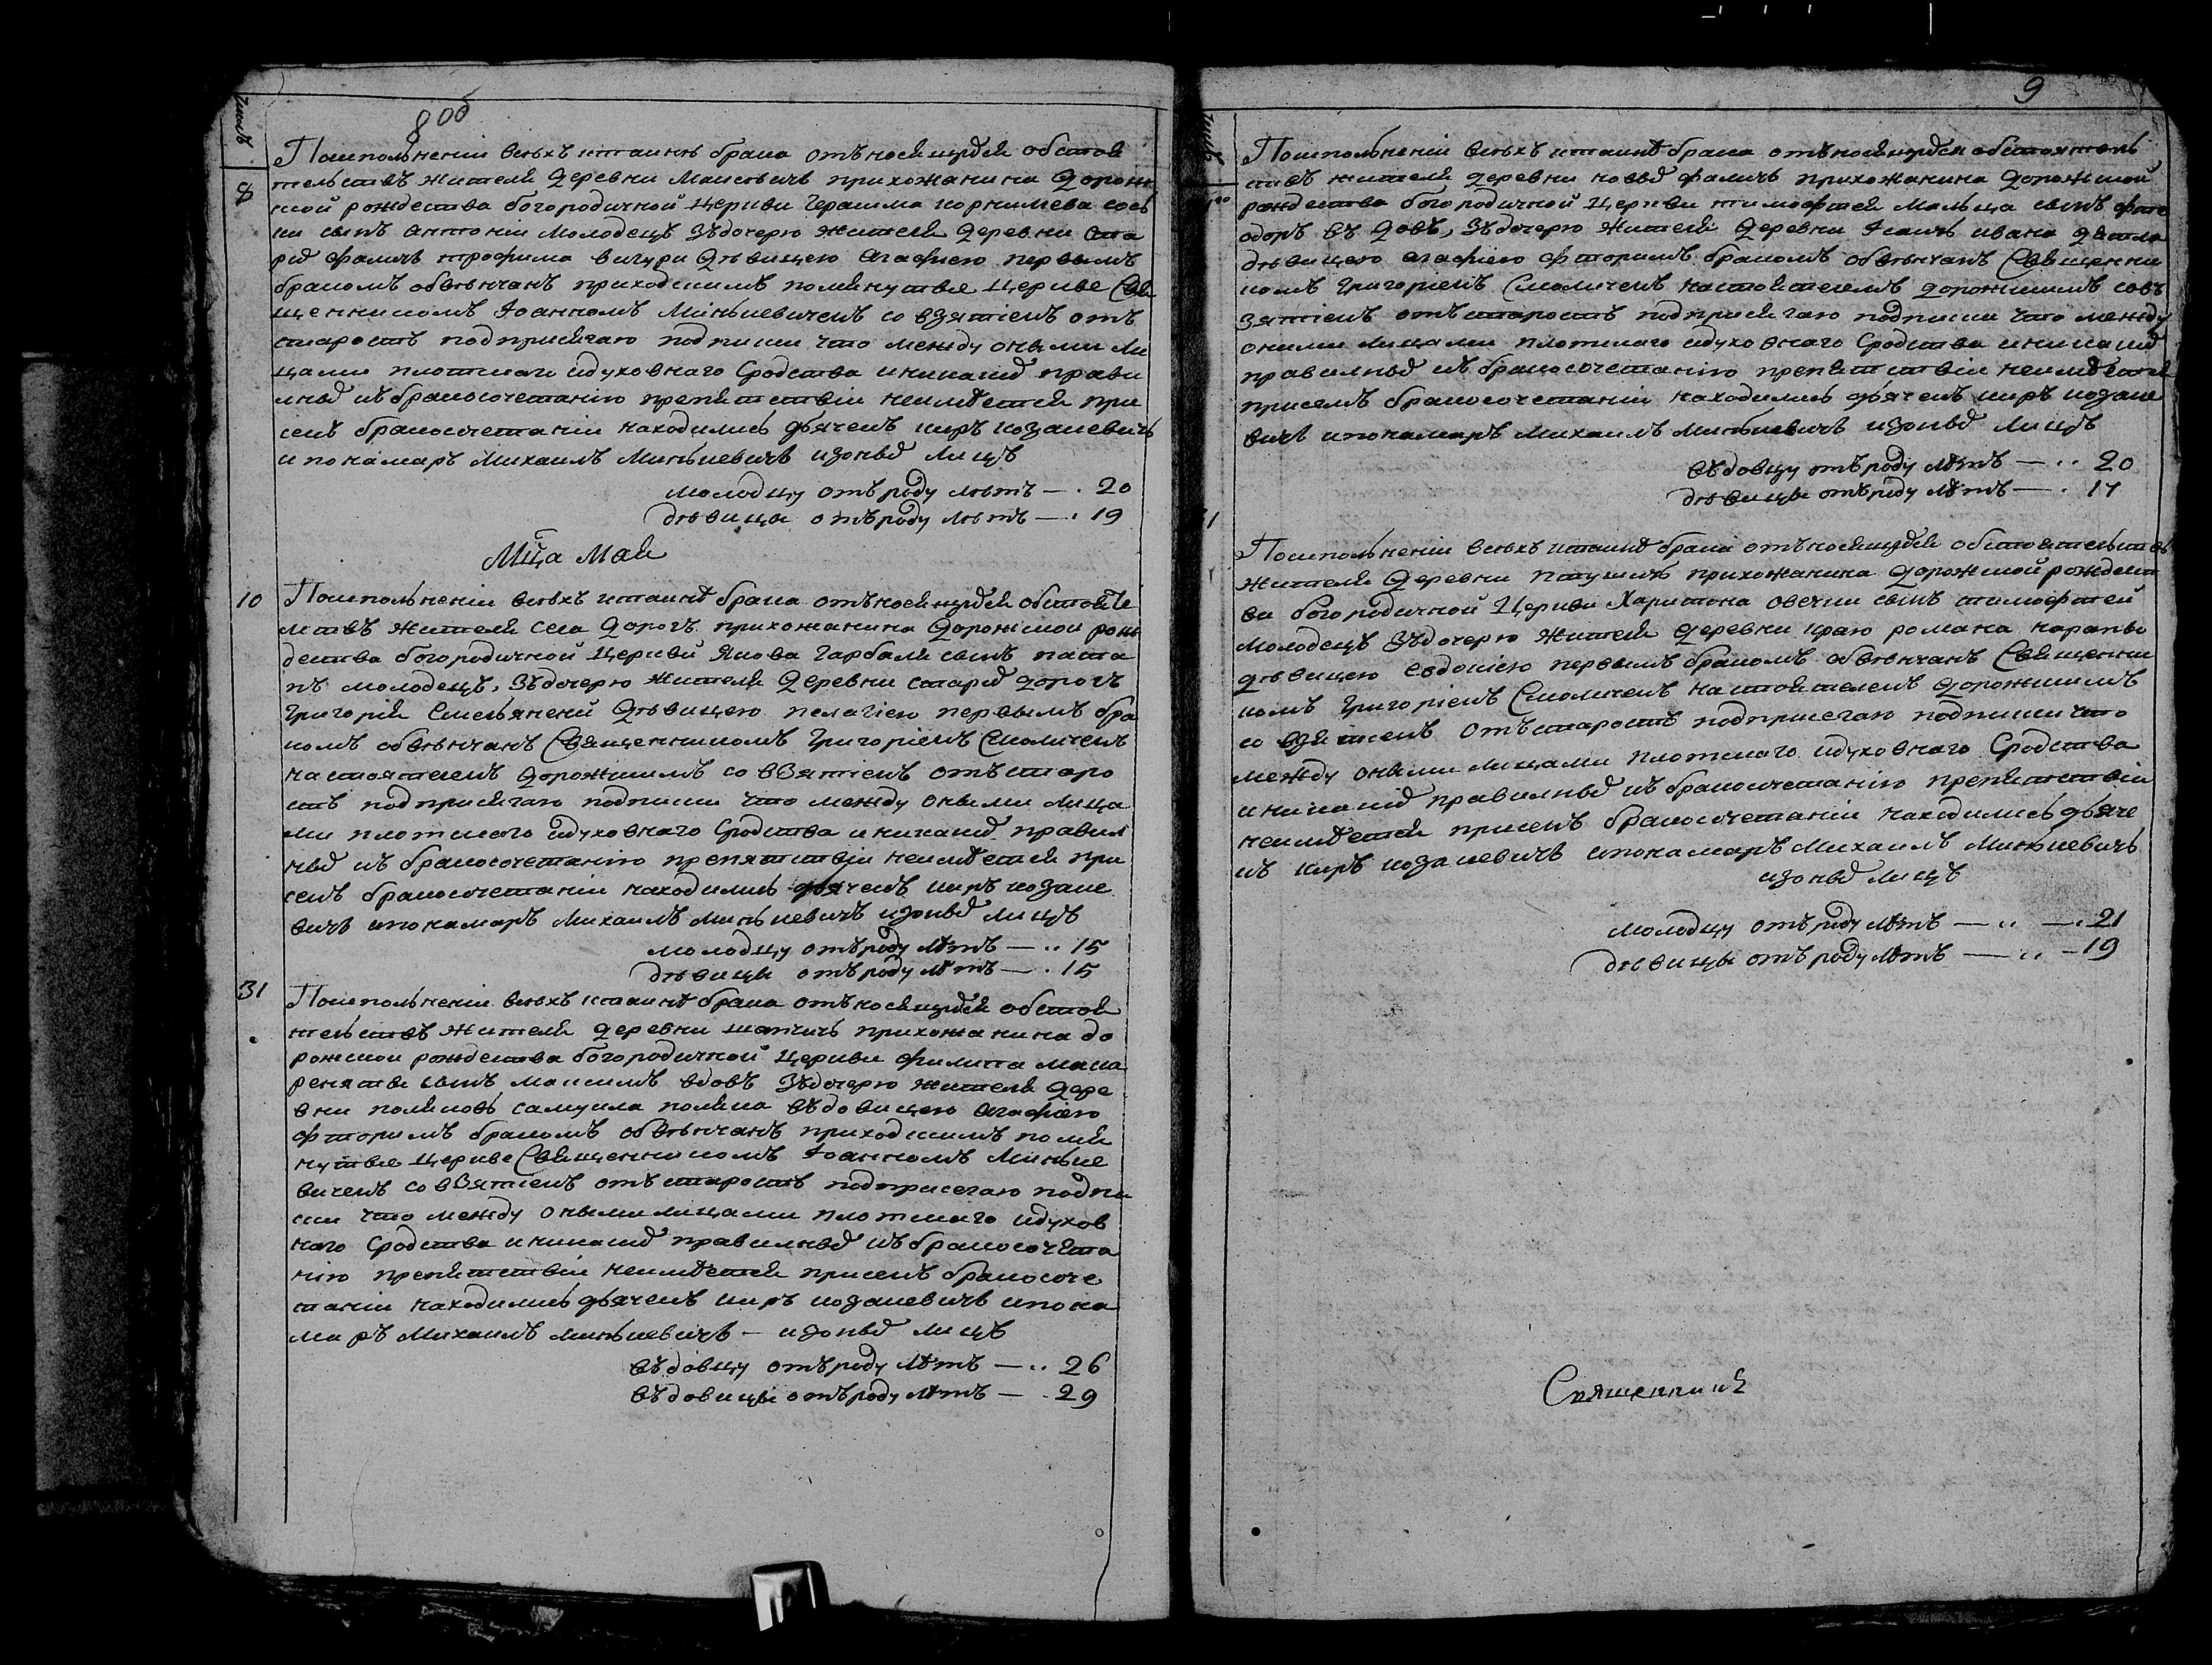 8 об
Числа
8
Поисполненіи всѣхъ ктаинѣ брака отъносящихся обстоя
тельствъ жителя деревни Максовичъ прихожанина дорож
ской рождества богородичной церкви Герасима корнилева сось
ки сынъ антоній молодецъ зъдочерю жителя деревни ста
рихъ фаличъ трофима вичури дѣвицею агафіею первымъ
бракомъ обвѣнчанъ приходскимъ помянутые церкве Свя
щенникомъ Іоанномъ Минькевичемъ со взятіемъ отъ
старостъ подприсягаю подписки что между оными ли
цами плотскаго идуховнаго сродства иникакихъ прави
лныхъ къ бракосочетанію препятствіи неимѣется при
семъ бракосочетаніи находились дьячекъ киръ козакевичъ
и понамаръ Михаилъ Минькевичъ изоныхъ лицъ
молодцу отъроду лѣтъ — . 20
дѣвицы отъроду лѣтъ — . 19
Мца Мая
10
Поисполненіи всѣхъ ктаинѣ брака отъносящихся обстояте
лствъ жителя села дорогъ прихожанина дорожской рож
дества богородичной церкви Якова гарбаля сынъ пота
пъ молодецъ, зъдочерю жителя деревни старихъ дорогъ
григорія Емельянени дѣвицею пелагіею первымъ бра
комъ обвѣнчанъ Священникомъ Григоріемъ Смоличемъ
настоятелемъ дорожскимъ со взятіемъ отъ старо
стъ подприсягаю подписки что между оными лица
ми плотскаго идуховнаго сродства иникакихъ правил
ныхъ къ бракосочетанію препятствіи неимѣется при
семъ бракосочетаніи находились дьячекъ киръ козаке
вичъ ипонамаръ Михаилъ Минькевичъ изоныхъ лицъ
молодцу отъроду лѣтъ — .. 15
дѣвицы отъроду лѣтъ — . 15
31
Поисполненіи всѣхъ ктаинѣ брака отъносящихся обстоя
тельствъ жителя деревни шапчичъ прихожанина до
рожской рождества богородичной церкви филипа мака
реняти сынъ максимъ вдовъ зъдочерю жителя дере
вни поликовъ самуила поляка въдовицею агафіею
фторимъ бракомъ обвѣнчанъ приходскимъ помя
нутые церкве Священникомъ Іоанномъ Миньке
вичемъ совзятіемъ отъстаростъ подприсегаю подпи
ски что между оными лицами плотскаго идухов
наго сродства иникакихъ правилныхъ къбракосочета
нію препятствіи неимѣется присемъ бракосоче
таніи находились дьячекъ киръ козакевичъ ипона
маръ Михаилъ минькевичъ — изоныхъ лицъ
въдовцу отъроду лѣтъ — .. 26
въдовицы отъроду лѣтъ — . 29
9
Числа
Поисполненіи всѣхъ ктаинѣ брака отъносящихся обстоятель
ствъ жителя деревни новыхъ фаличъ прихожанина дорожской
рождества богородичной церкви тимофтея Мальца сынъ фте
одоръ въдовъ, зъдочерю жителя деревни Исаичъ ивана дятла
дѣвицею агафіею фторимъ бракомъ обвѣнчанъ Священни
комъ Григоріемъ Смоличемъ настоятелемъ дорожскимъ совъ
зятіемъ отъстаростъ подприсягаю подписки что между
оними лицами плотскаго идуховнаго сродства иникакихъ
правилныхъ къ бракосочетанію препятствіи неимѣется
присемъ бракосочетаніи находились дьячекъ киръ козаке
вичъ ипонамаръ Михаилъ Минькевичъ изоныхъ лицъ
въдовцу отъроду лѣтъ — .. 20
дѣвицы отъроду лѣтъ — . 17
Поисполненіи всѣхъ ктаинѣ брака отъносящихся обстоятельствъ
жителя деревни пстушичъ прихожанина дорожской рождест
ва богородичной церкви Харитона овечки сынъ тимофтей
молодецъ зъдочерю жителя деревни краю романа
дѣвицею евдокіею первымъ бракомъ обвѣнчанъ Священни
комъ Григоріемъ Смоличемъ настоятелемъ дорожскимъ
со взятіемъ отъстаростъ подприсегаю подписки что
между оными лицами плотскаго идуховнаго сродства
иникакихъ правилныхъ къ бракосочетанію препятствіи
неимѣется присемъ бракосочетаніи находились дьяче
къ киръ козакевичъ ипонамаръ Михаилъ Минькевичъ
изоныхъ лицъ
молодцу отъроду лѣтъ — .. — . 21
дѣвицы отъроду лѣтъ — .. — 19
Священникъ